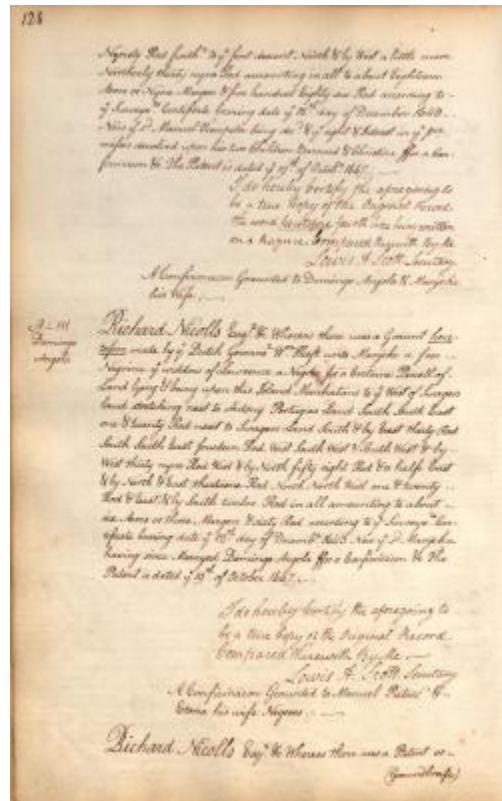 128
Ninety Rod further ye first descent North & by West a little more
Northerly thirty nyne Rod amounting in all to about Eighteene
Acres or Nyne Morgen & five hundred Eighty one Rod according to
ye Surveyrs Certificate bearing date ye day of December
Now ye sd Manuel being & ye right & Interest in ye
devolved upon his two Children & Christina ffor a Con-
firmacon &c The Patent is dated ye of 1667
I do hereby Certify the aforegoing to
be a true Copy of the Original Record
the word fourth line being written
on a Compared therewith By Me
Lewis A. Scott Secretary
A Confirmacon Graunted to Domingo Angola & Maryke
his Wife
Domingo
Angola
Richard Nicolls Esqr. &c Whereas there was a Graunt here-
tofore made by ye Dutch Governr. Wm. Kieft unto Maryke a free
Negrine ye widdow of Lawrence a Negro for a Certaine Parcell of
Land lying & being upon this Island Manhatans to ye West of
Land stretching next to Portugies Land South South East
one & twenty Rod next to Land South & by East thirty Rod
South South East fourteen Rod West South West & South West & by
West thirty nyne Rod West & by North fifty eight Rod & a halfe East
& by North & East Rod North North West one & twenty
Rod & East & by South twelve Rod in all amounting to about
six Acres or three Morgen & sixty Rod according to ye Surveyrs Cer-
tificate bearing date ye day of Decembr. Now ye sd Maryke
having since Marryed Domingo Angola ffor a Confirmacon &c The
Patent is dated ye of October 1667
I do hereby Certify the aforegoing to
be a true Copy of the Original Record
Compared therewith By Me
Lewis A. Scott Secretary
A Confirmacon Graunted to Manuel &
his wife Negroes
Richard Nicolls Esqr. &c Whereas there was a Patent or
(Groundbriefe)